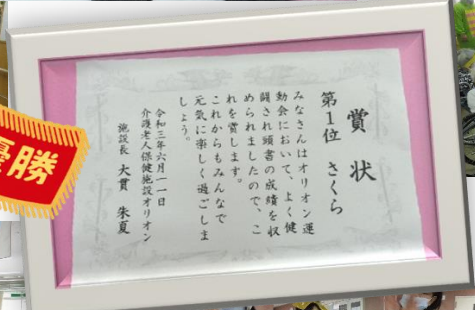 賞状
第1位 さくら
みなさんはオリオン運
動会において、よく健
闘され頭書の成績を収
められましたので、こ
れを賞します。
これからもみんなで
元気に楽しく過ごしま
しょう。
令和三年六月一一日
介護老人保健施設オリオン
施設長 大貫 朱夏
優勝